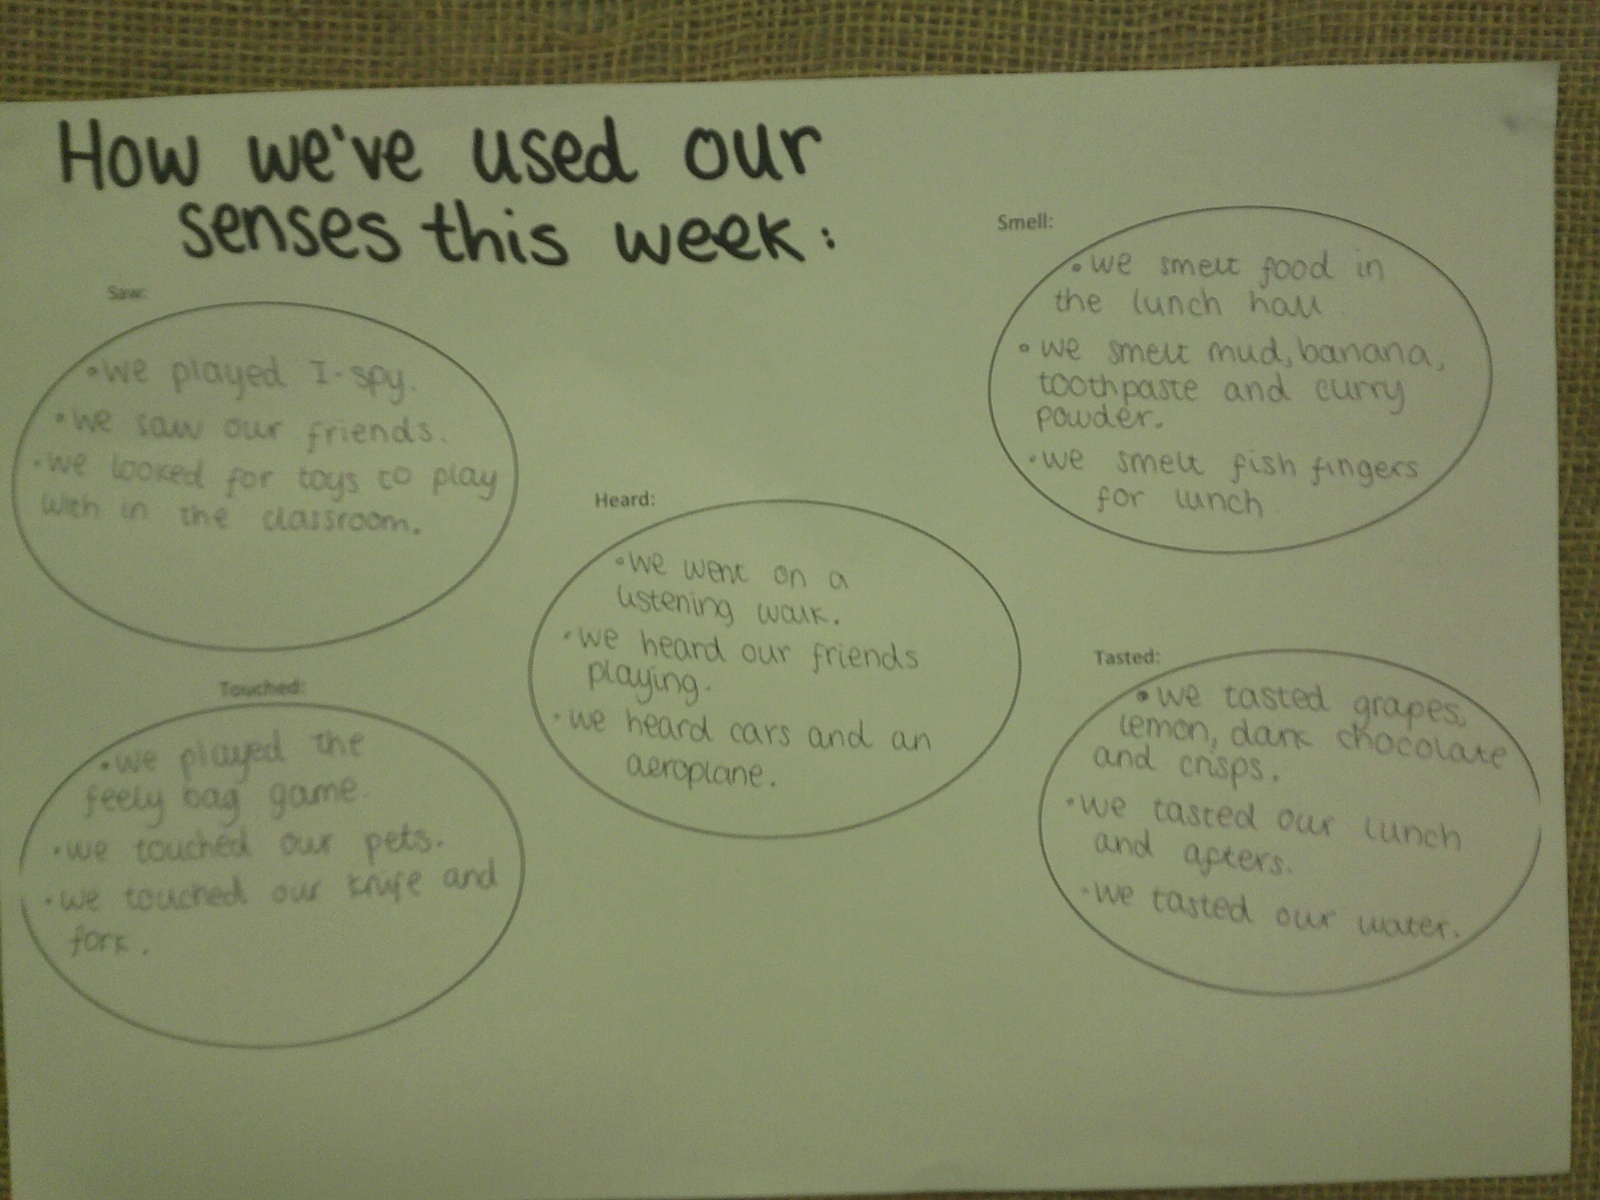 How we've used our
senses this week:
Saw:
•we played I-spy.
•we saw our friends.
•we looked for toys to play
with in the classroom.
Touched:
•we played the
feely bag game.
•we touched our pets.
•we touched our knife and
fork.
Heard:
•we went on a
listening walk.
•we heard our friends
playing.
•we heard cars and an
aeroplane.
Smell:
•we smelt food in
the lunch hall.
•we smelt mud, banana,
toothpaste and curry
powder.
•we smelt fish fingers
for lunch
Tasted:
•we tasted grapes,
lemon, dark chocolate
and crisps.
•we tasted our lunch
and afters.
•we tasted our water.